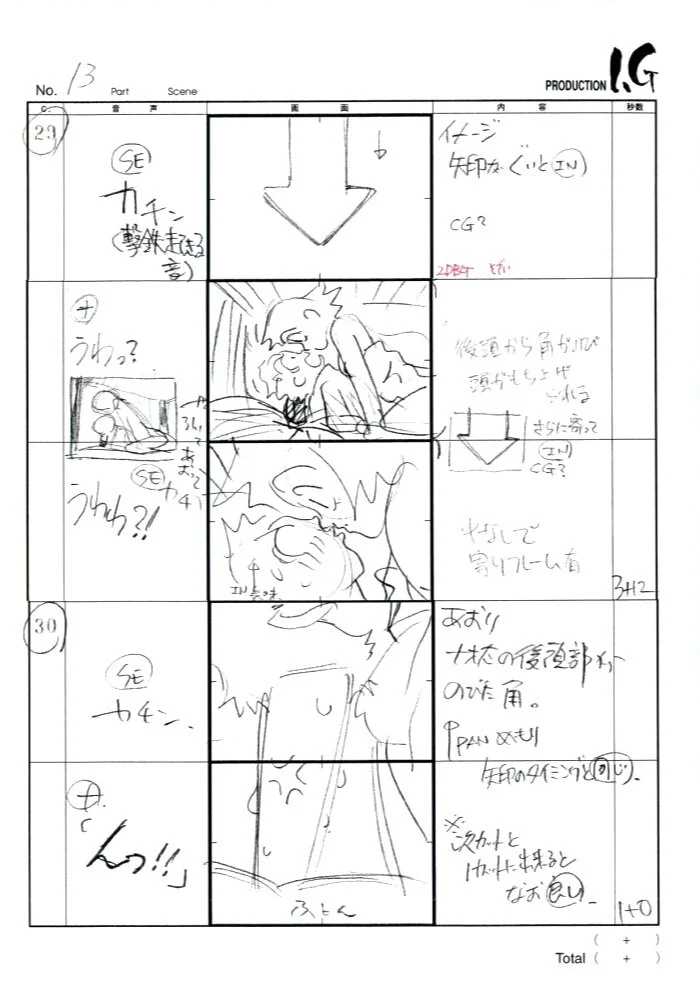 No. 13 Part Scene
PRODUCTION I.G
C. 音声 画面 内容 秒数
29
SE
カチン
(撃鉄
音)
イメージ
矢印がぐいとIN)
CG?
ナ
うわっ?
後頭から角がのび
頭がもち上げ
られる
SE
カチ
うわわ?!
さらに寄って
IN
CG?
寄りフレーム有
IN
3+12
30
SE
カチン
あおり
の後頭部
のびた角。
↑PAN めもり
矢印のタイミングと同じ。
ナ
「んっ!!」
※次カットと
1カットに出来ると
なお良い
ふとん
1+0
( + )
Total ( + )